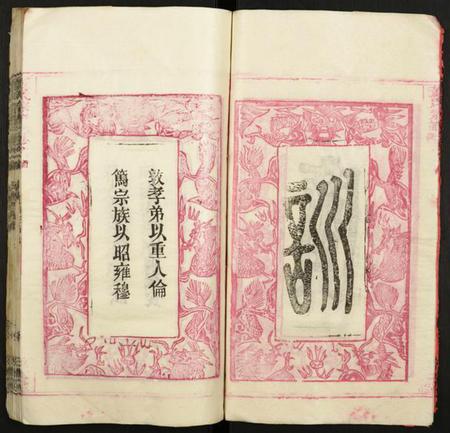 敦孝弟以重人倫
篤宗族以昭雍穆